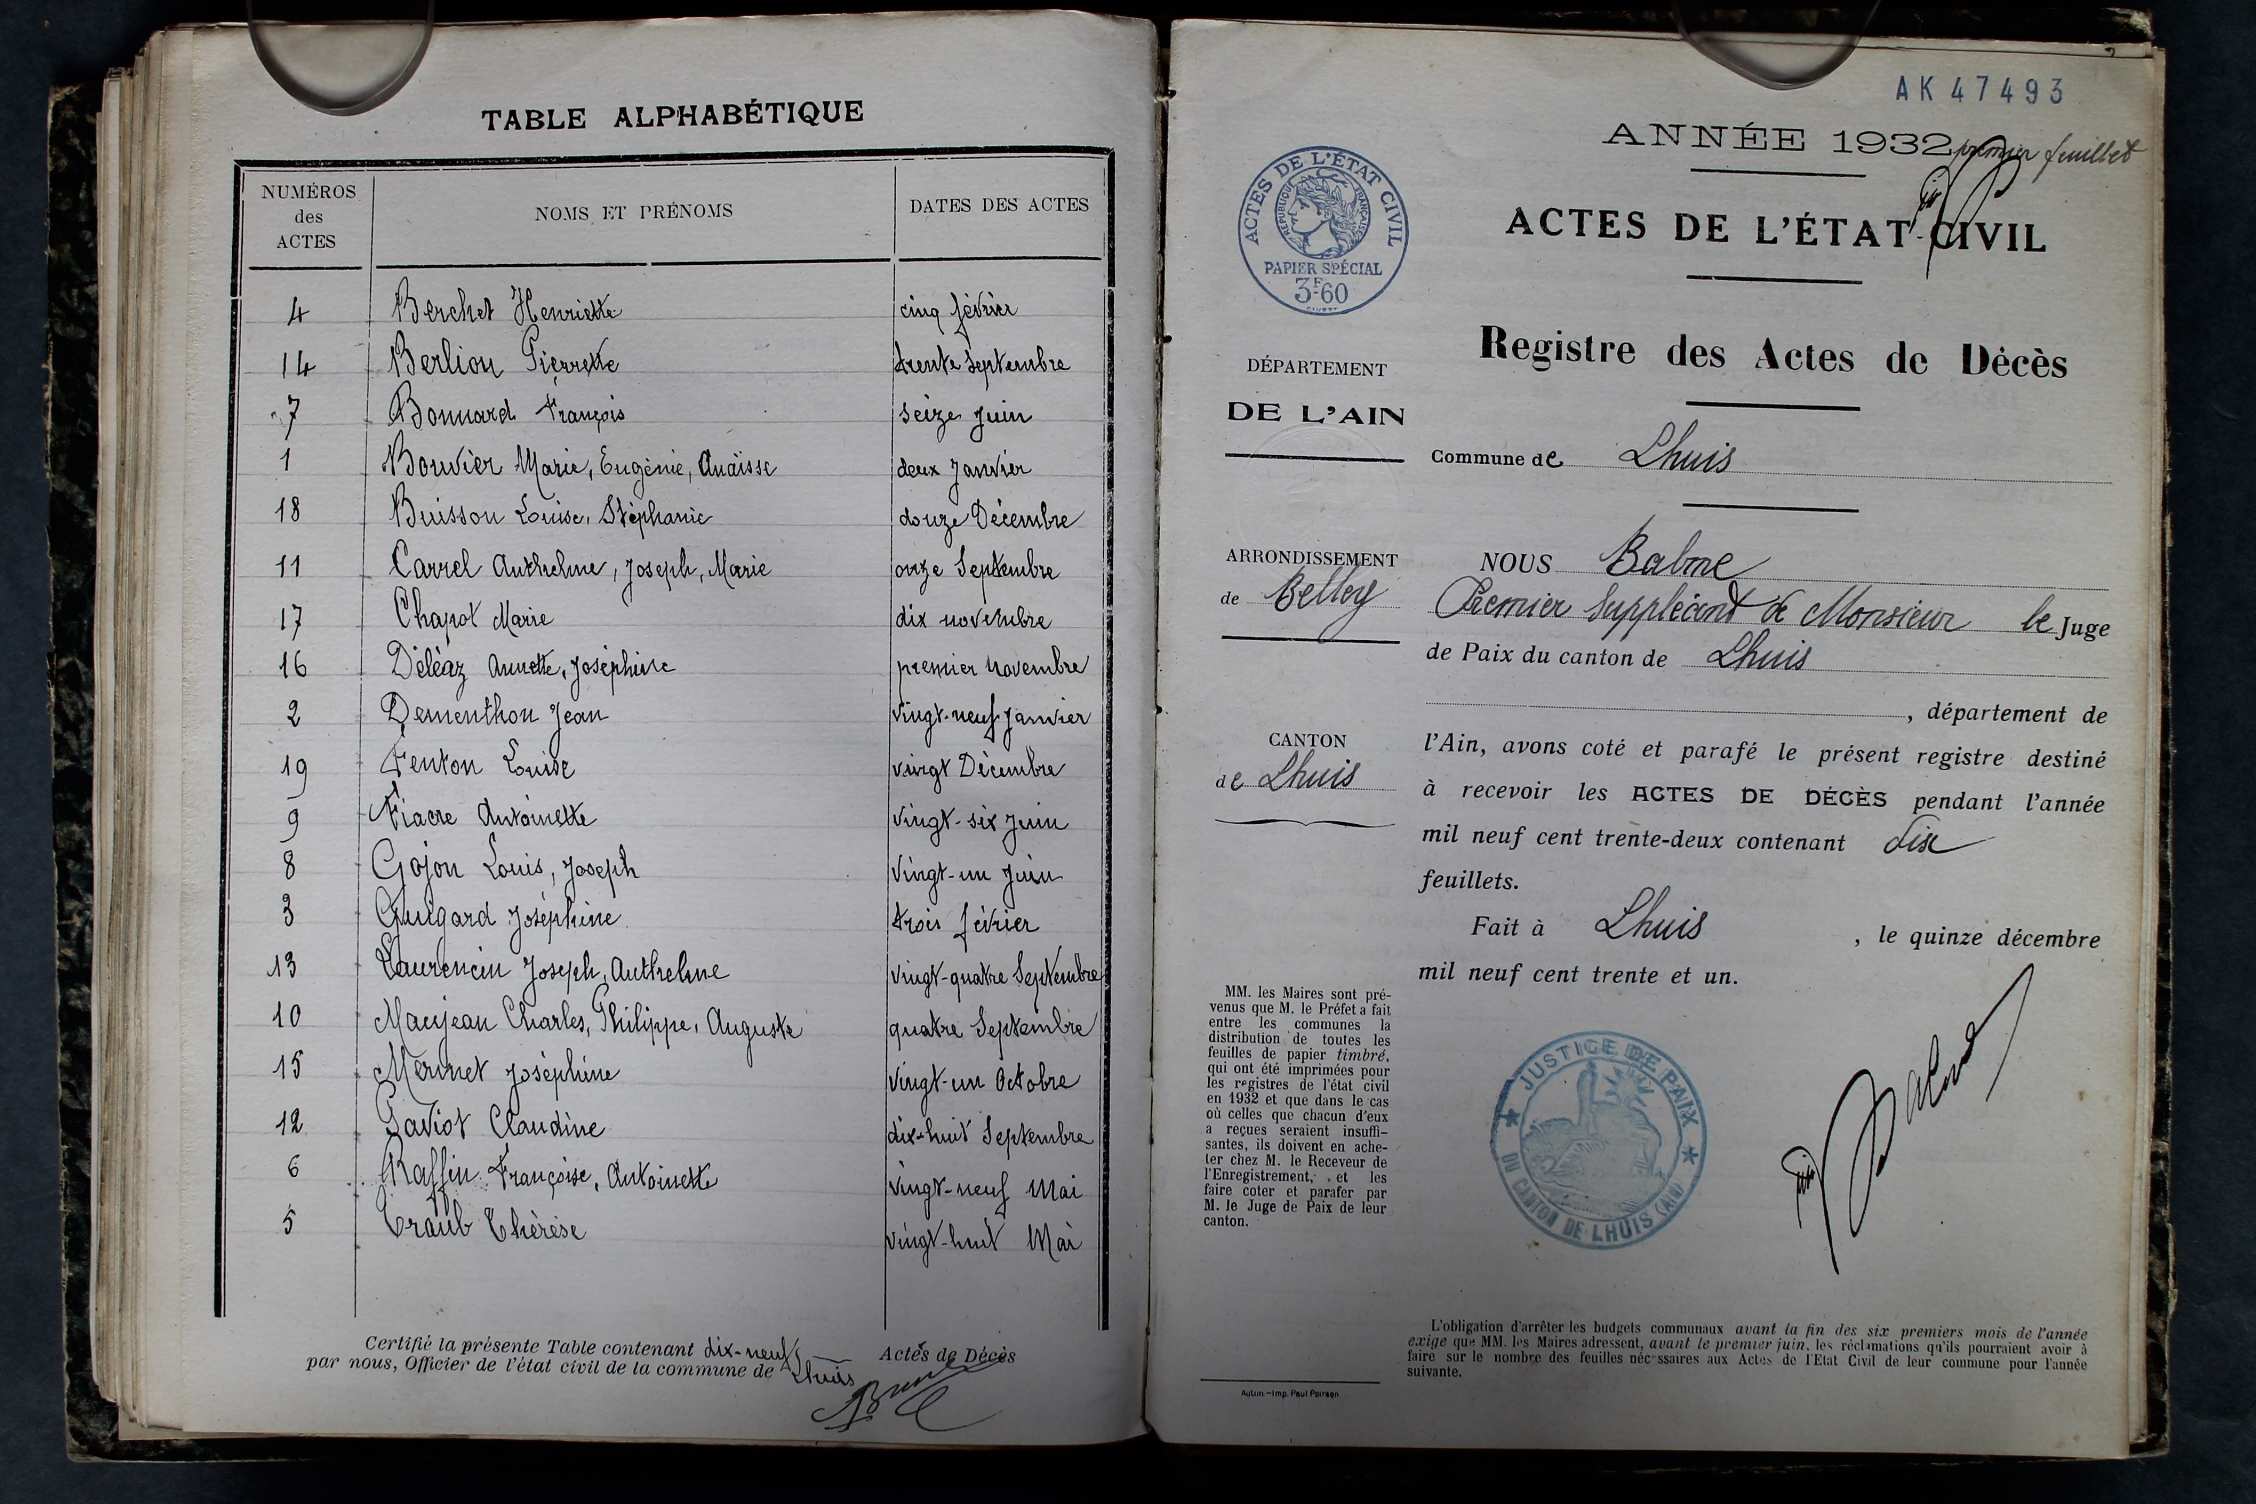 TABLE ALPHABÉTIQUE
NUMÉROS des ACTES NOMS ET PRÉNOMS DATES DES ACTES
4 Berchet Henriette cinq février
14 Berlion Pierrette trente Septembre
7 Bonnard François seize Juin
1 Bouvier Marie, Eugénie, Anaïsse deux Janvier
18 Buisson Louise, Stéphanie douze Décembre
11 Carrel Anthelme, Joseph, Marie onze Septembre
17 Chapot Marie dix novembre
16 Déléaz Annette, Joséphine premier novembre
2 Dementhon Jean vingt-neuf Janvier
19 Fenton Louise vingt Décembre
9 Fiacre Antoinette vingt-six Juin
8 Gojon Louis, Joseph vingt-un Juin
3 Guigard Joséphine trois février
13 Laurencin Joseph, Anthelme vingt-quatre Septembre
10 Maujean Charles, Philippe, Auguste quatre Septembre
15 Mermet Joséphine vingt-un Octobre
12 Paviot Claudine dix-huit Septembre
6 Raffin Françoise, Antoinette vingt-neuf Mai
5 Traub Thérèse vingt-huit Mai
Certifié la présente Table contenant dix-neuf Actes de Décès
par nous, Officier de l'état civil de la commune de Lhuis
AK 47493
ANNÉE 1932 premier feuillet
ACTES DE L'ÉTAT CIVIL
RÉPUBLIQUE FRANÇAISE
PAPIER SPÉCIAL
3F60
ACTES DE L'ÉTAT-CIVIL
Registre des Actes de Décès
DÉPARTEMENT
DE L'AIN
Commune de Lhuis
ARRONDISSEMENT
de Belley
CANTON
de Lhuis
NOUS Balme
Premier Suppléant de Monsieur le Juge
de Paix du canton de Lhuis
, département de
l'Ain, avons coté et parafé le présent registre destiné
à recevoir les ACTES DE DÉCÈS pendant l'année
mil neuf cent trente-deux contenant dix
feuillets.
Fait à Lhuis, le quinze décembre
mil neuf cent trente et un.
MM. les Maires sont pré-
venus que M. le Préfet a fait
entre les communes la
distribution de toutes les
feuilles de papier timbré,
qui ont été imprimées pour
les registres de l'état civil
en 1932 et que dans le cas
où celles que chacun d'eux
a reçues seraient insuffi-
santes, ils doivent en ache-
ter chez M. le Receveur de
l'Enregistrement, et les
faire coter et parafer par
M. le Juge de Paix de leur
canton.
JUSTICE DE PAIX
DU CANTON DE LHUIS (AIN)
Balme
L'obligation d'arrêter les budgets communaux avant la fin des six premiers mois de l'année
exige que MM. les Maires adressent, avant le premier juin, les réclamations qu'ils pourraient avoir à
faire sur le nombre des feuilles nécessaires aux Actes de l'Etat Civil de leur commune pour l'année
suivante.
Autun.—Imp. Paul Poirson